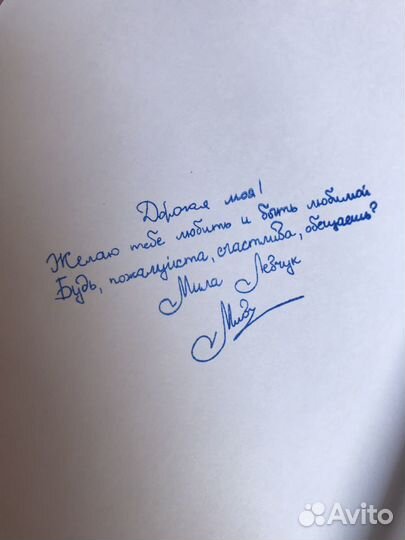 Дорогая моя!
Желаю тебе любить и быть любимой
Будь, пожалуйста, счастлива, обещаешь?
Мила Левчук
Avito